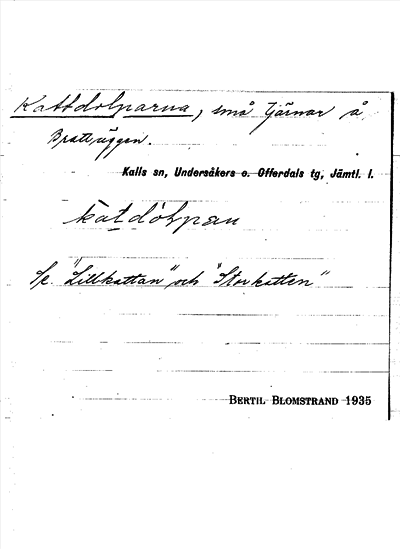 Kattdolparna, små tjärnar å
Brattväggen.
Kalls sn, Undersåkers o. Offerdals tg, Jämtl. l.
katdólpan
Se "Lillkattan" och "Storkatten"
BERTIL BLOMSTRAND 1935